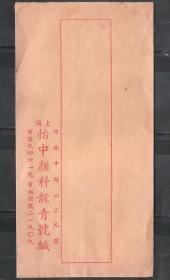 河南中路六三九號
上海怡中顏料靛青號緘
電話九四六一九電報掛號二一九〇九